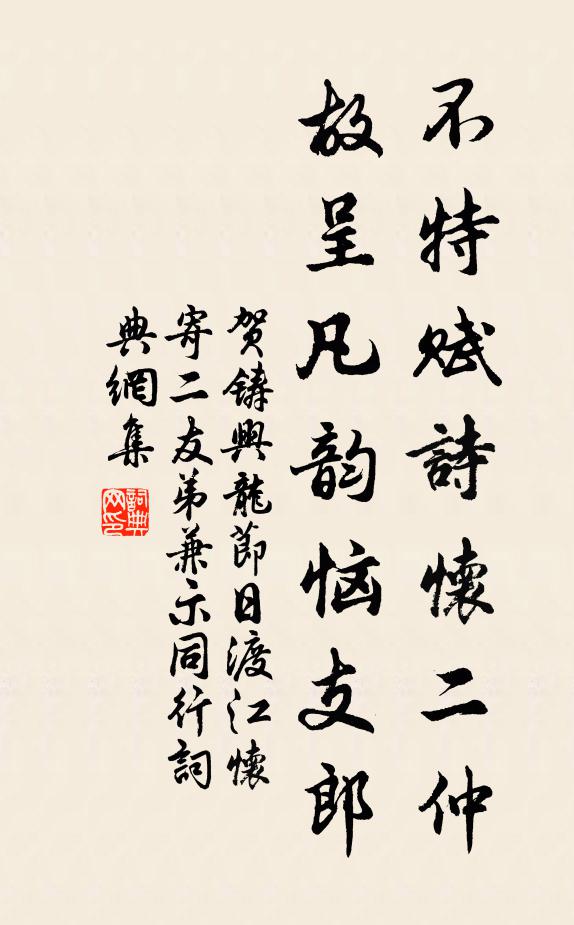 不特赋詩懷二仲
故呈凡韵恼支郎
贺铸興龍節日渡江懷
寄二友弟兼示同行詞
典網集
詞典
网印